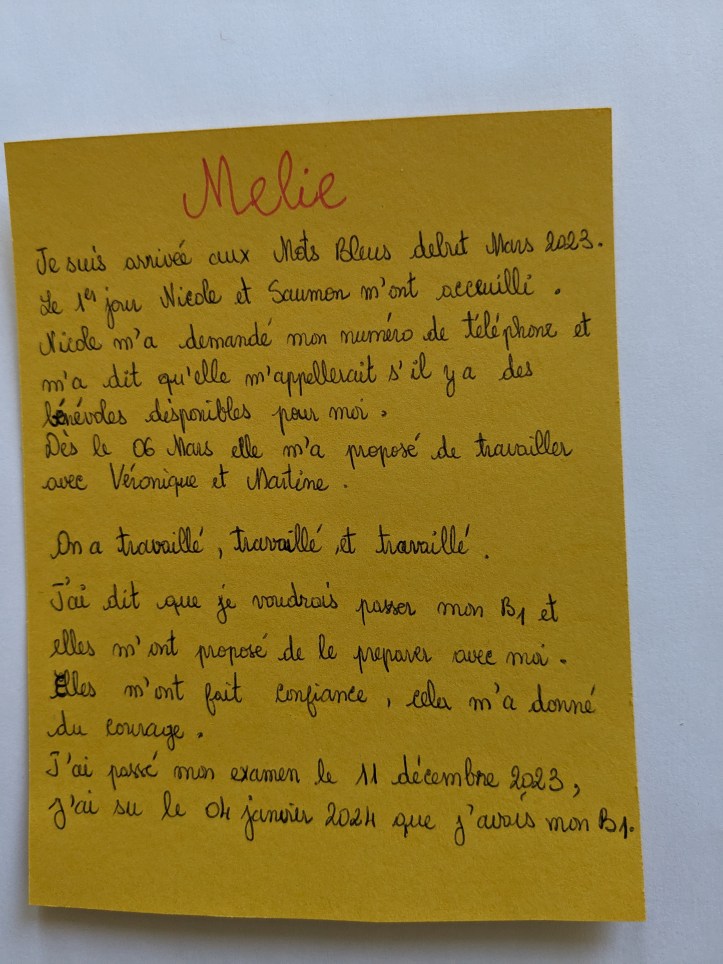 Melie
Je suis arriveé aux Mots Bleus debut Mars 2023.
Le 1er jour Nicole et Saumon m'ont acceuilli.
Nicole m'a demandé mon numéro de téléphone et
m'a dit qu'elle m'appellerait s'il y a des
bénévoles disponibles pour moi.
Dès le 06 Mars elle m'a proposé de travailler
avec Véronique et Martine.
On a travaillé, travaillé, et travaillé.
J'ai dit que je voudrais passer mon B1 et
elles m'ont proposé de le preparer avec moi.
Elles m'ont fait confiance, cela m'a donné
du courage.
J'ai passé mon examen le 11 décembre 2023,
j'ai su le 04 janvier 2024 que j'avais mon B1.